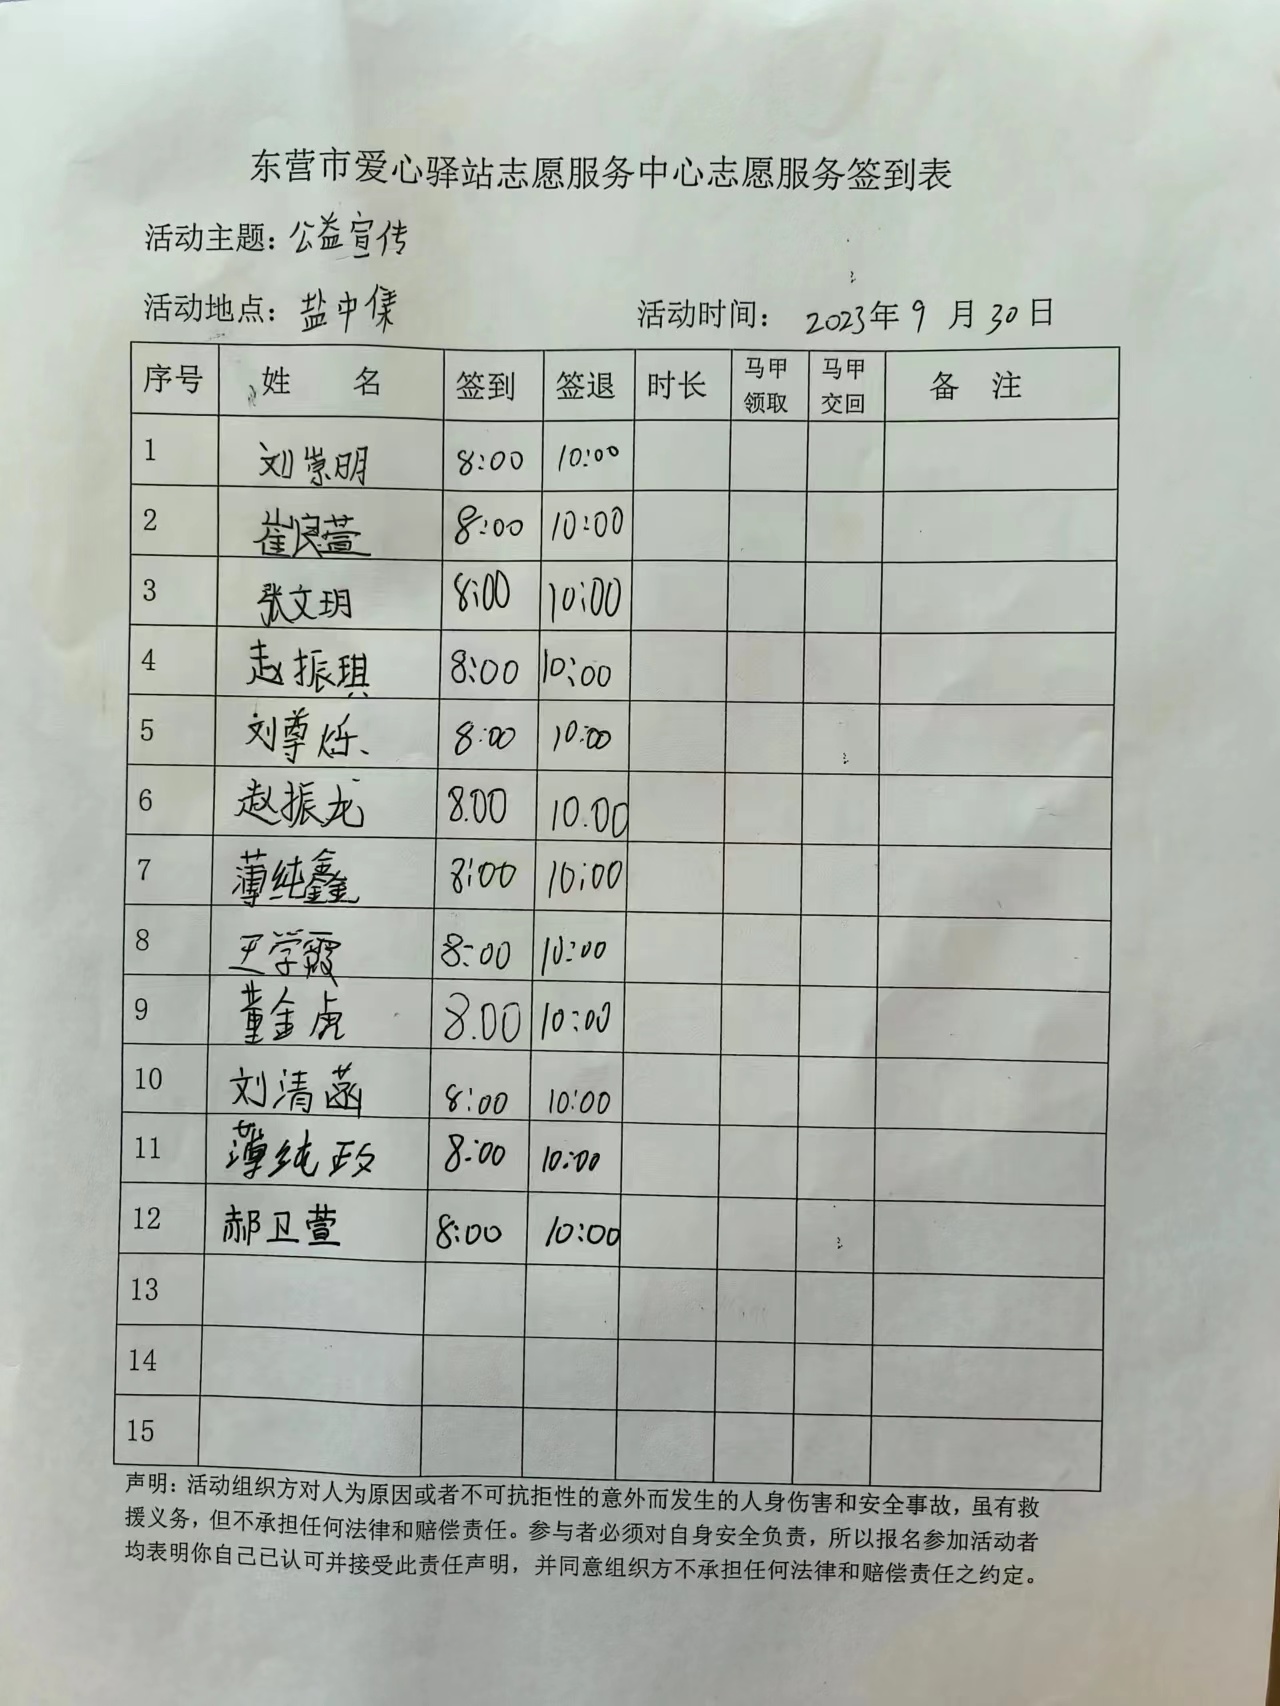 东营市爱心驿站志愿服务中心志愿服务签到表
活动主题：公益宣传
活动地点：盐中集 活动时间： 2023年 9 月 30 日
序号 姓 名 签到 签退 时长 马甲领取 马甲交回 备 注
1 刘崇明 8:00 10:00
2 崔良萱 8:00 10:00
3 张文玥 8:00 10:00
4 赵振琪 8:00 10:00
5 刘尊烁 8:00 10:00
6 赵振龙 8.00 10.00
7 薄纯鑫 8:00 10:00
8 王学霞 8:00 10:00
9 董金虎 8.00 10:00
10 刘清菡 8:00 10:00
11 薄纯政 8:00 10:00
12 郝卫萱 8:00 10:00
13
14
15
声明：活动组织方对人为原因或者不可抗拒性的意外而发生的人身伤害和安全事故，虽有救
援义务，但不承担任何法律和赔偿责任。参与者必须对自身安全负责，所以报名参加活动者
均表明你自己已认可并接受此责任声明，并同意组织方不承担任何法律和赔偿责任之约定。